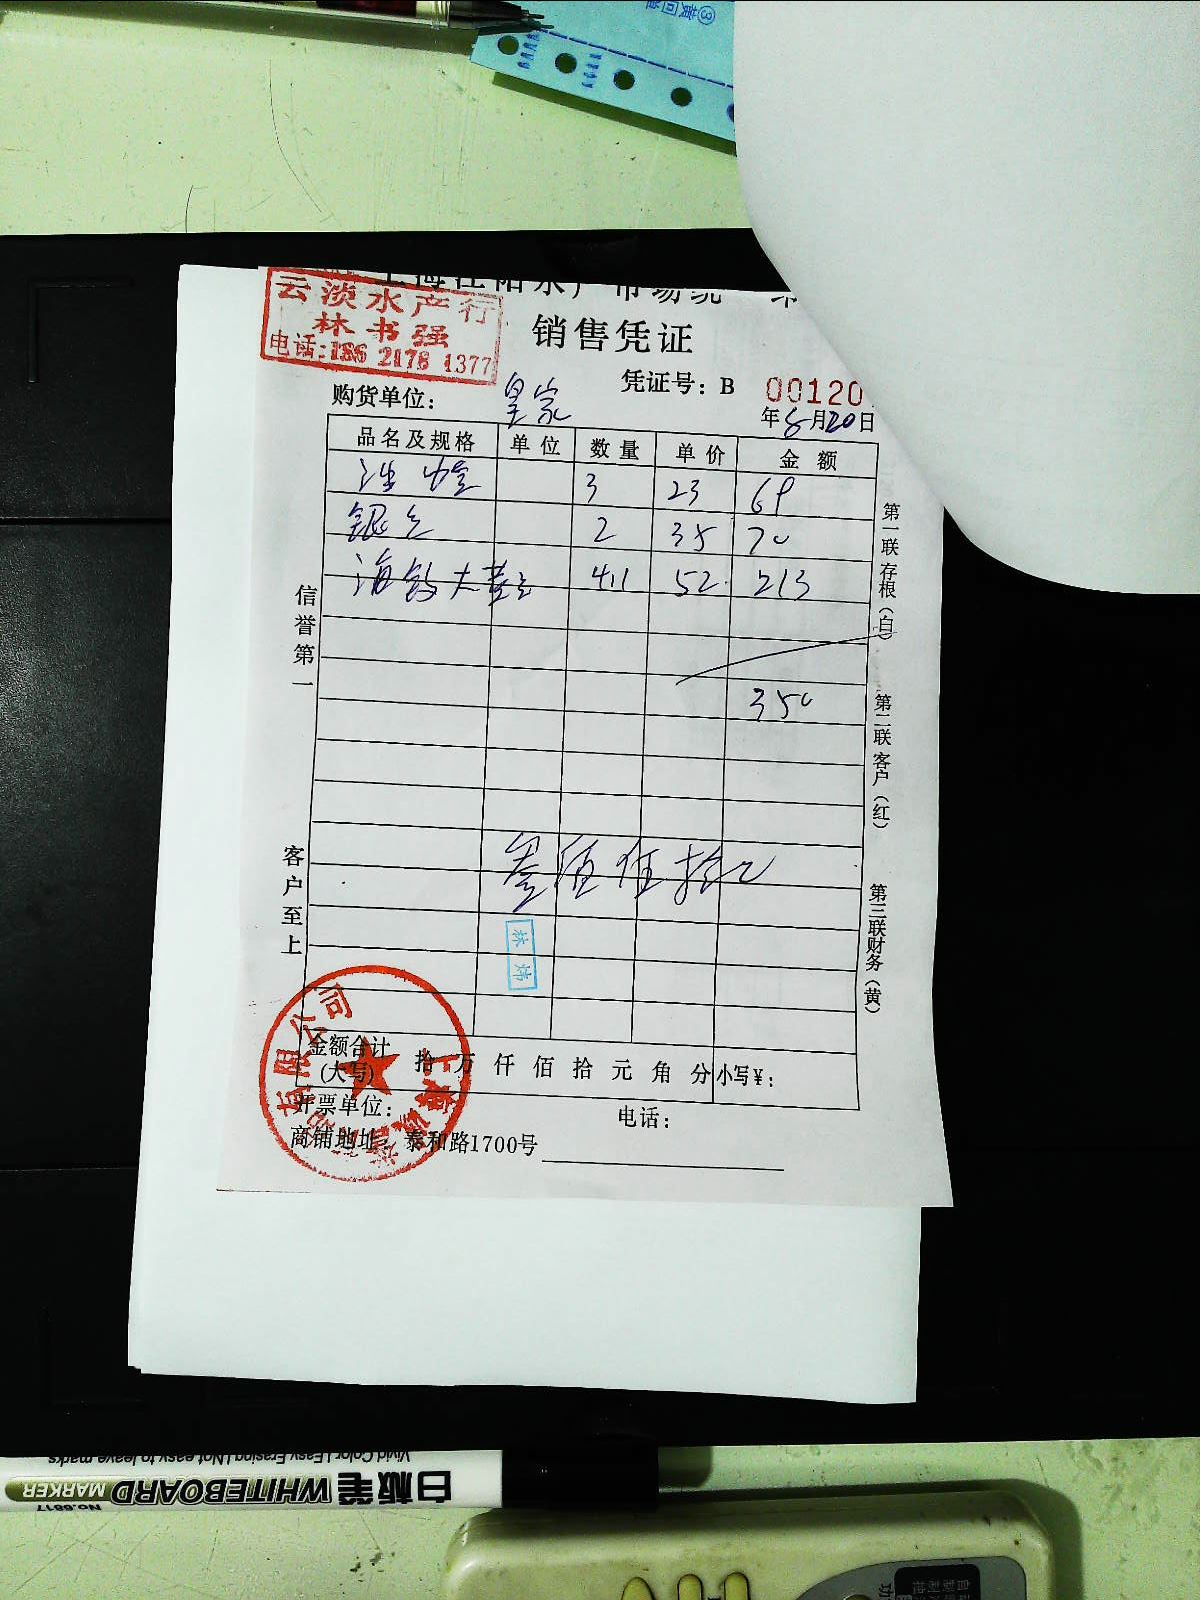 ③黄回单
云淡水产行
林书强
电话:186 2178 1377
销售凭证
凭证号：B 00120
购货单位： 皇家
年 8月20日
品名及规格 单位 数量 单价 金额
3 23 69
银鱼 2 35 70
海钓大黄鱼 4.1 52 213
350
叁佰伍拾元
信誉第一
客户至上
第一联存根（白）
第二联客户（红）
第三联财务（黄）
金额合计
(大写) 拾 万 仟 佰 拾 元 角 分 小写￥：
开票单位： 电话：
商铺地址：泰和路1700号
有限公司
上海
Vivid Color | Easy Erasing | Not easy to leave marks
白板笔 WHITEBOARD MARKER
No.6817